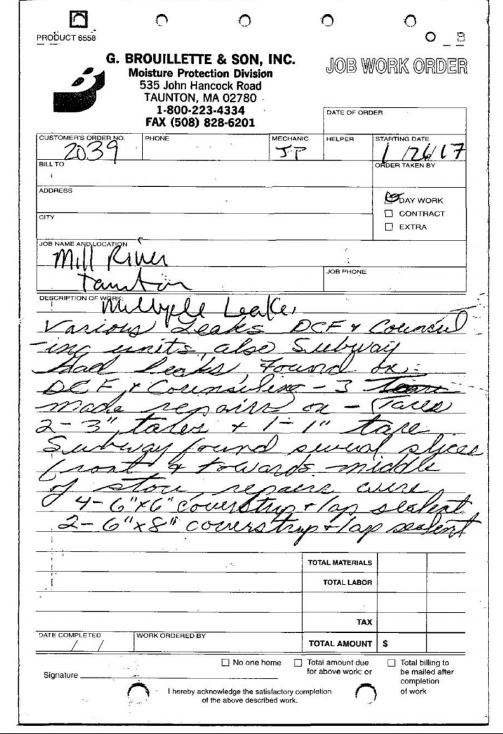 PRODUCT 6558
G. BROUILLETTE & SON, INC.
Moisture Protection Division
535 John Hancock Road
TAUNTON, MA 02780
1-800-223-4334
FAX (508) 828-6201
JOB WORK ORDER
DATE OF ORDER
CUSTOMER'S ORDER NO. PHONE MECHANIC HELPER STARTING DATE
2039 JP 1/26/17
BILL TO ORDER TAKEN BY
ADDRESS
DAY WORK
CONTRACT
EXTRA
CITY
JOB NAME AND LOCATION
Mill River
Taunton
JOB PHONE
DESCRIPTION OF WORK:
Multyple Leaks
Various Leaks DCF & Councul
-ing units, also Subway
had leaks, Found on
DCF & Counsiling - 3
made repairs on - (Tares
2-3" tares + 1-1" tare
Subway found several splices
front & towards middle
of store, repairs were
4-6"x6" coverstrip + lap sealent
2-6"x8" coverstrip + lap sealent
TOTAL MATERIALS
TOTAL LABOR
TAX
DATE COMPLETED WORK ORDERED BY TOTAL AMOUNT $
/ /
No one home Total amount due for above work: or Total billing to be mailed after completion of work
Signature
I hereby acknowledge the satisfactory completion
of the above described work.